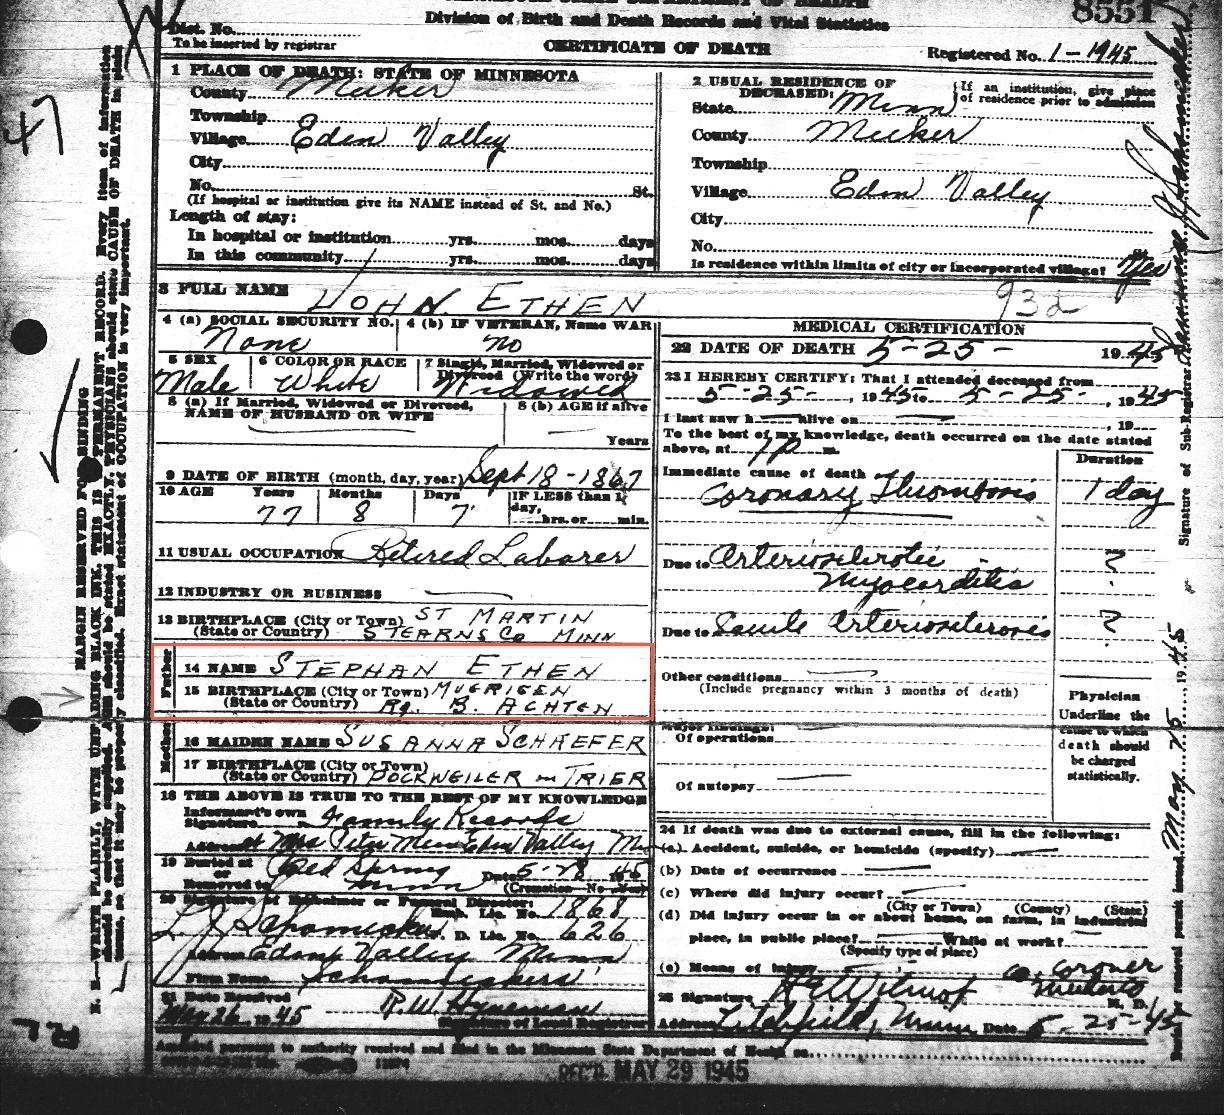 8551
Division of Birth and Death Records and Vital Statistics
Dist. No.
To be inserted by registrar
CERTIFICATE OF DEATH
Registered No. 1-1945
1 PLACE OF DEATH: STATE OF MINNESOTA
County Meeker
Township
Village Eden Valley
City
No. St.
(If hospital or institution give its NAME instead of St. and No.)
Length of stay:
In hospital or institution yrs. mos. days
In this community yrs. mos. days
2 USUAL RESIDENCE OF DECEASED:
{If an institution, give place
of residence prior to admission
State Minn
County Meeker
Township
Village Eden Valley
City
No. St.
Is residence within limits of city or incorporated village? Yes
3 FULL NAME JOHN ETHEN
932
4 (a) SOCIAL SECURITY NO. None
4 (b) IF VETERAN, Name WAR no
5 SEX Male
6 COLOR OR RACE White
7 Single, Married, Widowed or
Divorced (Write the word) Widowed
8 (a) If Married, Widowed or Divorced,
NAME OF HUSBAND OR WIFE
8 (b) AGE if alive
Years
9 DATE OF BIRTH (month, day, year) Sept 18-1867
10 AGE Years 77 Months 8 Days 7
IF LESS than 1
day, hrs. or min.
11 USUAL OCCUPATION Retired Laborer
12 INDUSTRY OR BUSINESS
13 BIRTHPLACE (City or Town) ST MARTIN
(State or Country) STEARNS CO MINN
Father
14 NAME STEPHAN ETHEN
15 BIRTHPLACE (City or Town) MUERIGEN
(State or Country) Rg. B. ACHTEN
Mother
16 MAIDEN NAME SUSANNA SCHAEFER
17 BIRTHPLACE (City or Town)
(State or Country) DOCKWEILER in TRIER
18 THE ABOVE IS TRUE TO THE BEST OF MY KNOWLEDGE
Informant's own
Signature Family Records
Address at Mrs Peter Eden Valley
19 Buried at
or
Removed to Red Spring Minn
Date 5- 1945
(Cremation No Yes)
20 Signature of Embalmer or Funeral Director:
Emb. Lic. No. 1868
L. J. D. Lic. No. 626
Address Eden Valley Minn
Firm Name
21 Date Received
May 26, 1945
R. W.
Signature of Local Registrar
MEDICAL CERTIFICATION
22 DATE OF DEATH 5-25- 1945
23 I HEREBY CERTIFY: That I attended deceased from
5-25-, 1945 to 5-25-, 1945
I last saw h alive on , 19
To the best of my knowledge, death occurred on the date stated
above, at 1 p m.
Immediate cause of death
Duration
Coronary Thrombosis 1 day
Due to Arteriosclerotic ?
Myocarditis
Due to Senile Arteriosclerosis ?
Other conditions
(Include pregnancy within 3 months of death)
Physician
Underline the
cause to which
death should
be charged
statistically.
Major findings:
Of operations
Of autopsy
24 If death was due to external cause, fill in the following:
(a) Accident, suicide, or homicide (specify)
(b) Date of occurrence
(c) Where did injury occur?
(City or Town) (County) (State)
(d) Did injury occur in or about home, on farm, in industrial
place, in public place? While at work?
(Specify type of place)
(e) Means of injury
Coroner
25 Signature M. D.
Address Litchfield, Minn Date 5-25-45
Amended pursuant to authority received and filed in the Minnesota State Department of Health on
REC'D. MAY 29 1945
MARGIN RESERVED FOR BINDING
N. B.—WRITE PLAINLY, WITH UNFADING BLACK INK. THIS IS A PERMANENT RECORD. Every item of information
should be carefully supplied. AGE should be stated EXACTLY. PHYSICIANS should state CAUSE OF DEATH in plain
terms, so that it may be properly classified. Exact statement of OCCUPATION is very important.
47
Signature of Sub-Registrar
Burial or removal permit issued, May 25 1945